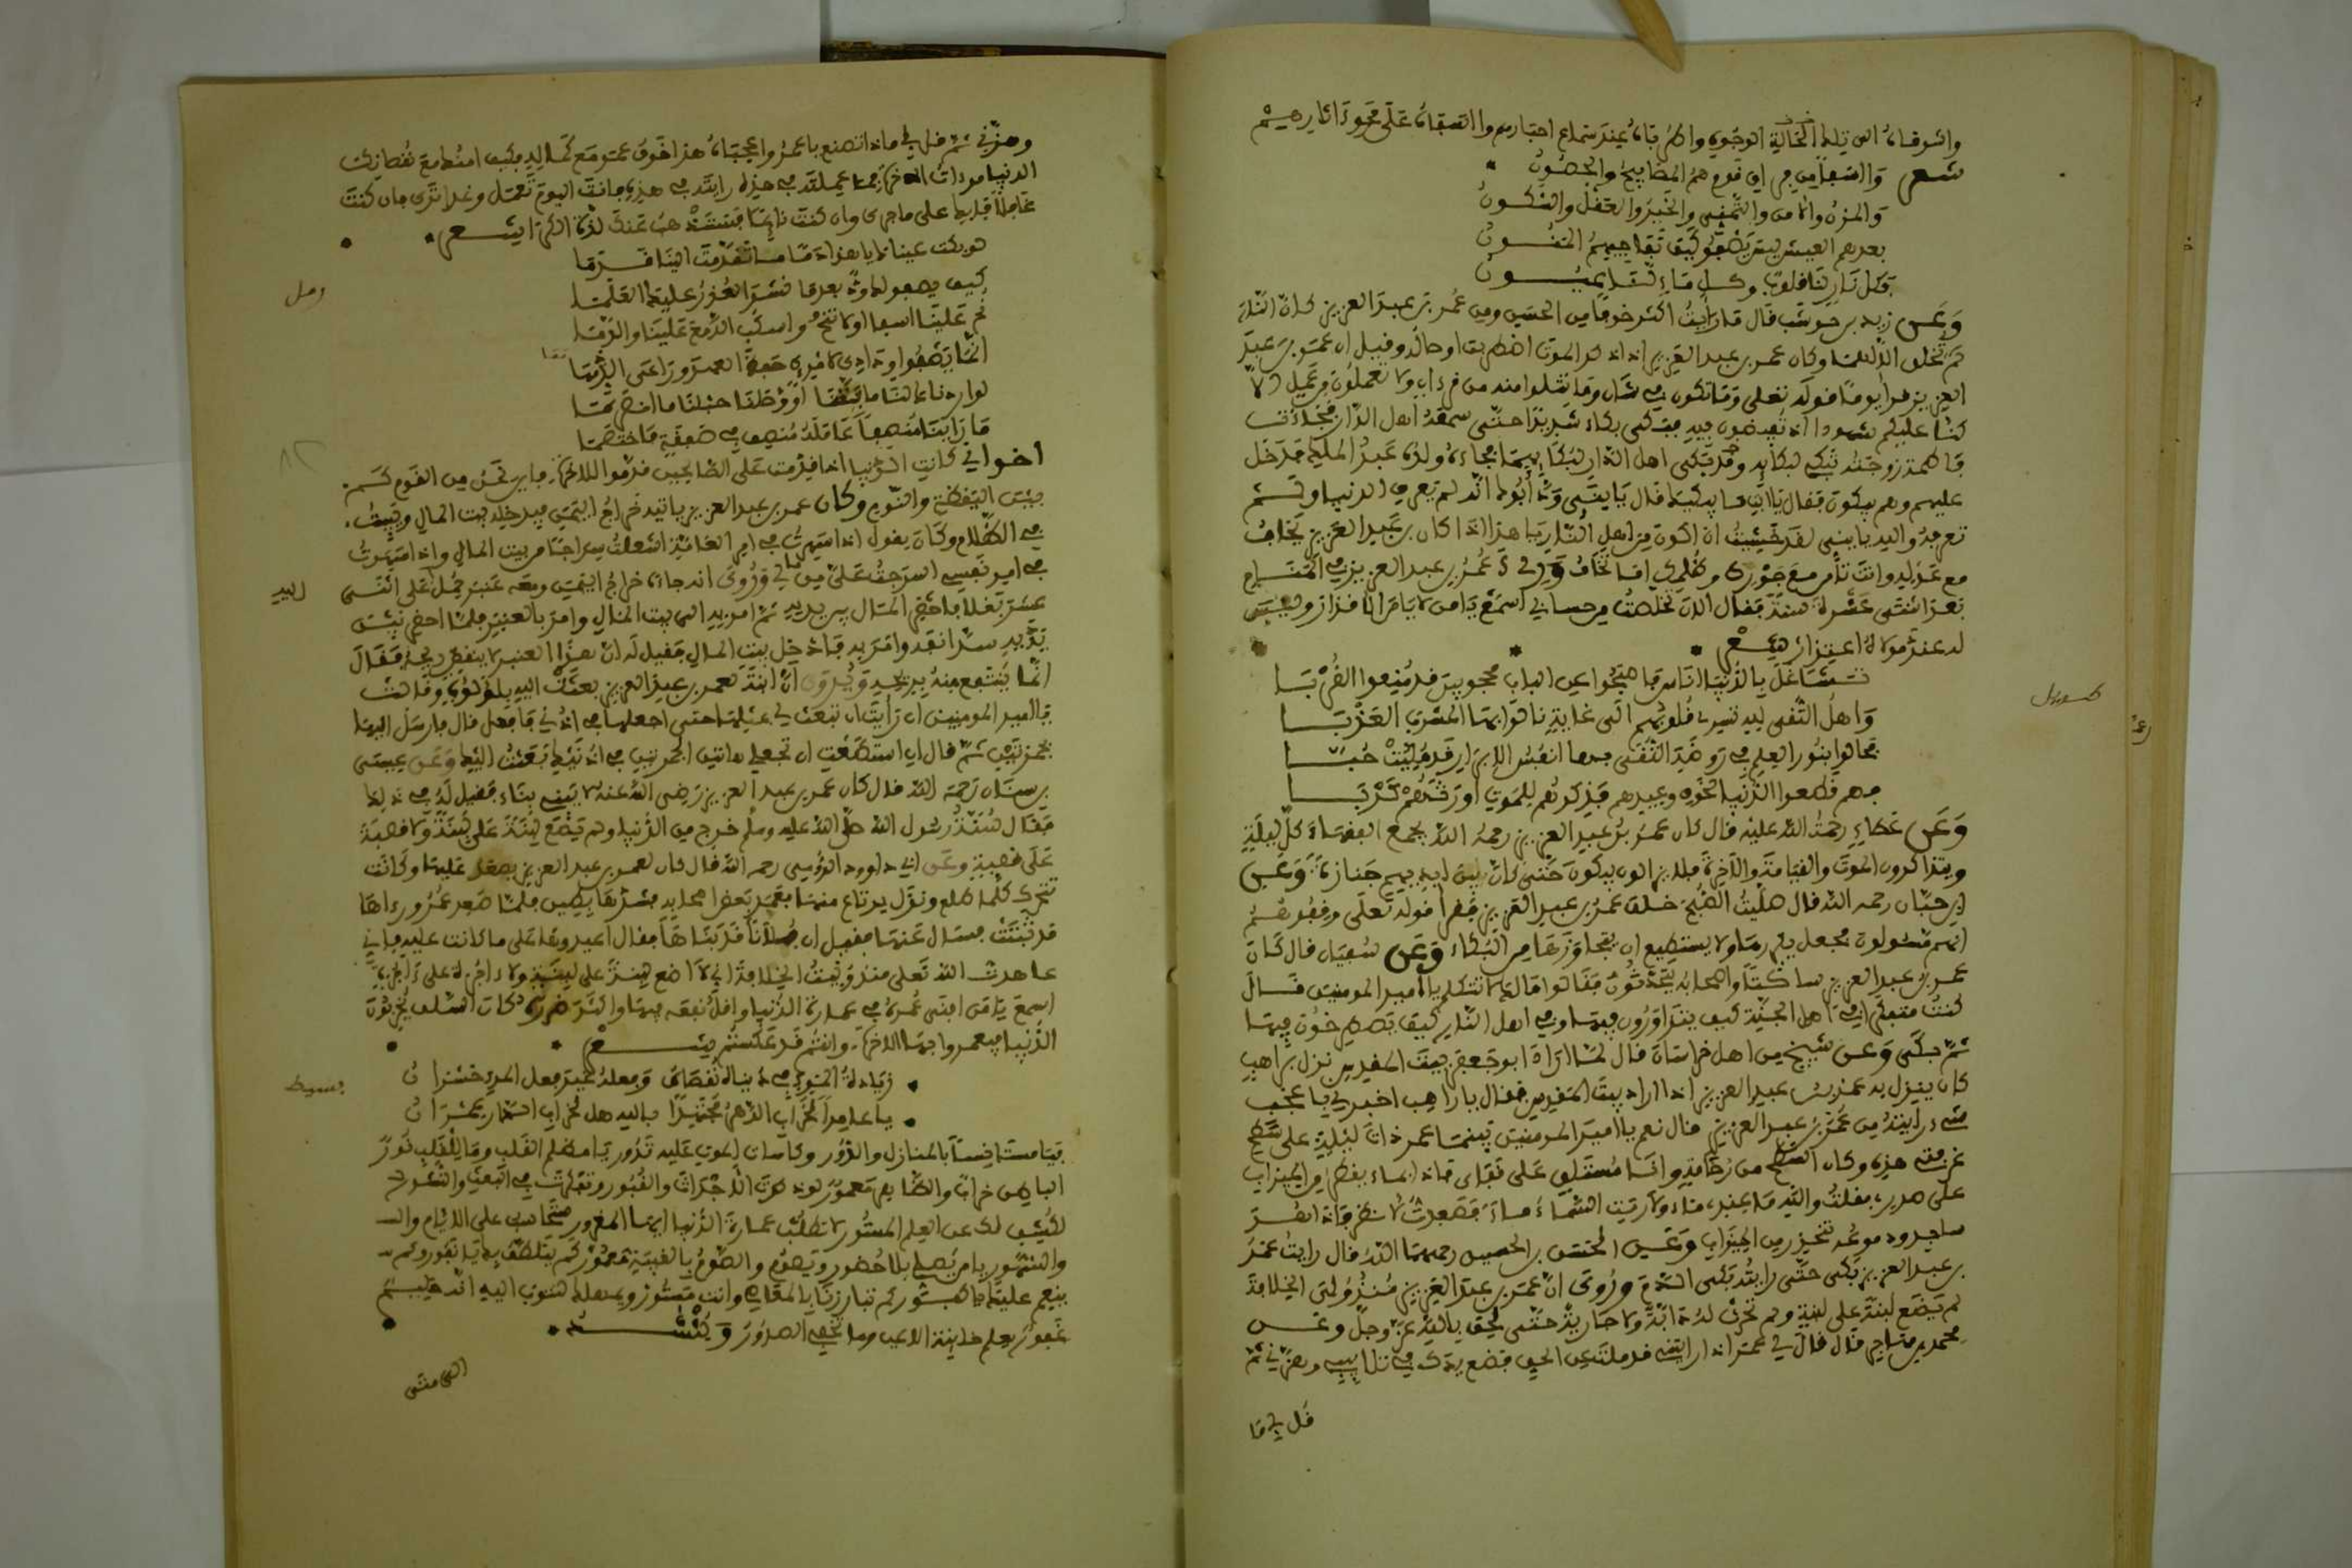 واشوقاه الى تلك الخالية الوجوه واطرباه عند سماع اخبارهم وا اسفاه على محو ءاثارهم
شعر وا اسفا من فراق قوم هم المصابيح والحصون
والمزن والامن والخير والعقل والسكون
بعدهم العيش ليس يصفو وكيف تفاجيهم المنون
فكل نار لنا قلوب وكل ماء لنا عيون
وعن زيد بن حوشب قال ما رايت اكثر خوفا من الحسن ومن عمر بن عبد العزيز كان النار
لم تخلق الا لهما وكان عمر بن عبد العزيز اذا ذكر الموت اضطربت اوصاله وقيل ان عمر بن عبد
العزيز قرا يوما قوله تعلى وما تكون في شان وما تتلوا منه من قرءان ولا تعملون من عمل الا
كنا عليكم شهودا اذ تفيضون فيه فبكى بكاء شديدا حتى سمعه اهل الدار فجاءت
فاطمة زوجته تبكي لبكايه وبكى اهل الدار لبكايهما فجاء ولده عبد الملك فدخل
عليهم وهم يبكون فقال يا ابت ما يبكيك قال يا بني ود ابوك انه لم يعرف الدنيا ولم
تعرفه والله يا بني لقد خشيت ان اكون من اهل النار يا هذا اذا كان بن عبد العزيز يخاف
مع عدله وانت تامن مع جورك وظلمك اما تخاف رءي عمر بن عبد العزيز في المنام
بعد اثنتي عشرة سنة فقال الان تخلصت من حسابي اسمع يا من لا يامر الا فزار وليس
له عند مولاه اعتذار شعر
تشاغل بالدنيا اناس فاصبحوا عن الباب محجوبين قد منعوا القربا
واهل التقى لله تسري قلوبهم الى غاية نالوا بها المشرب العذبا
فجالوا بنور العلم في روضة التقى بها انفس الابرار قد مليت حبا
فهم قطعوا الدنيا بخوف وغيرهم
وعن عطاء رحمة الله عليه قال كان عمر بن عبد العزيز رحمه الله يجمع الفقهاء كل ليلة
ويتذاكرون الموت والقيامة والاخرة فلا يزالون يبكون حتى كان بين ايديهم جنازة وعن
ابن حبان رحمه الله قال صليت الصبح خلف عمر بن عبد العزيز فقرا قوله تعلى وقفوهم
انهم مسئولون فجعل يكررها ولا يستطيع ان يتجاوزها من البكاء وعن سفيان قال كان
عمر بن عبد العزيز ساكتا واصحابه يتحدثون فقالوا مالك لا تتكلم يا امير المومنين قال
كنت متفكرا في اهل الجنة كيف يتزاورون فيها وفي اهل النار كيف يصطرخون فيها
ثم بكى وعن شيخ من اهل خراسان قال لما اراد ابو جعفر بيت المقدس نزل براهب
كان ينزل به عمر بن عبد العزيز اذا اراد بيت المقدس فقال يا راهب اخبرني باعجب
شيء رايته من عمر بن عبد العزيز قال نعم يا امير المومنين بينما عمر ذات ليلة على سطح
غرفتي هذه وكان السطح من رخام وانا مستلق على قفاي فاذا بماء يقطر من الميزاب
على صدري فقلت والله ما عندي ماء ولا رميت السماء ماء فصعدت لانظر فاذا هو
ساجد ودموعه تنحدر من الميزاب وعن الحسن بن الحسين رحمهما الله قال رايت عمر
بن عبد العزيز بكى حتى رايته بكى الدم وروي ان عمر بن عبد العزيز منذ ولي الخلافة
لم يضع لبنة على لبنة ولم تحدث له دابة ولا جارية حتى لحق بالله عز وجل وعن
محمد بن مهاجر قال قال لي عمر اذا رايتني قد ملت عن الحق فضع يدك في تلابيبي وهزني ثم
قل لي ما
وهزني ثم قل لي ماذا تصنع يا عمر واعجباه هذا خوف عمر مع كماله فكيف امنك مع نقصانك
الدنيا مرءات الاخرة فما عملته في هذه رايته في هذه فانت اليوم تعمل وغدا ترى فان كنت
عاقلا فابك على ما جرى وان كنت نايما فستنتبه هب عنك لذة الكرى شعر
لو بكت عيناك يا هذا دما ما تقدمت الينا قدما
كيف يصفو لك ود بعدما نشر الغدر عليك العلما
نح علينا اسفا اولا تنح واسكب الدمع علينا والدما
رمل
انما يصفوا ودادي لامرئ حفظ العهد وراعى الذمما
لو اردناك لنا ما فتنا او وصلنا حبلنا ما انصرما
ما راينا منصفا عامله منصف في صفقة فاختصما
اخواني كانت الدنيا اذا قدمت على الصالحين قدموا للاخرة فاين نحن من القوم كم
بين اليقظة والنوم وكان عمر بن عبد العزيز ياتيه خراج اليمن فيدخله بيت المال ويبيت
في الظلام وكان يقول اذا سهرت في امر العامة اشعلت سراجا من بيت المال واذا سهرت
في امر نفسي اسرجت على من مالي وروي انه جاءه خراج اليمن ومعه عنبر حمل على اثني
اليه
عشر بغلا فاحضر المال بين يديه ثم امر به الى بيت المال وامر بالعنبر فلما احضر بين
يديه سد انفه وامر به فادخل بيت المال فقيل له ان هذا العنبر لا ينقص ريحه فقال
انما ينتفع منه بريحه ويروى ان ابنة لعمر بن عبد العزيز بعثت اليه بلؤلؤة وقالت
يا امير المومنين ان رايت ان تبعث لي مثلها حتى اجعلها في اذني فافعل قال فارسل اليها
بجمرتين ثم قال ان استطعت ان تجعلي هاتين الجمرتين في اذنيك بعثت اليك وعن عيسى
بن سنان رحمه الله قال كان عمر بن عبد العزيز رضي الله عنه لا يبني بناء فقيل له في ذلك
فقال سنة رسول الله صلى الله عليه وسلم خرج من الدنيا ولم يضع لبنة على لبنة ولا قصبة
على قصبة وعن ابي داوود الدوسي رحمه الله قال كان لعمر بن عبد العزيز يصعد عليها وكانت
تتحرك كلما طلع ونزل يرتاع منها فعمد بعض اصحابه فشدها بطين فلما صعد عمر وراها
قد ثبتت فسال عنها فقيل ان فلانا قد بناها فقال اعيدوها على ما كانت عليه فاني
عاهدت الله تعلى منذ وليت الخلافة اني لا اضع لبنة على لبنة ولا ءاجرة على ءاجرة
اسمع يا من افنى عمره في عمارة الدنيا واقل نفعه فيها واكثر ضرره كان السلف يخربون
الدنيا فيعمروا بها الاخرة وانتم قد عكستم شعر
زيادة المرء في دنياه نقصان وفعله غير فعل الخير خسران
بسيط
يا عامرا لخراب الدهر مجتهدا بالله هل لخراب الدهر عمران
فيا مستانسا بالمنازل والدور وكاسات الموت عليه تدور يا مظلم القلب وما للقلب نور
الباطن خراب والظاهر معمور لو ذكرت الاجداث والقبور وتفكرت في البعث والنشور
لكشف لك عن العلم المستور لا تطلب عمارة الدنيا ايها المغرور
والشهور يا من يصلي بلا حضور ويصوم والصوم بالغيبة مغمور
ينعم عليك كم تبارزنا بالمعاصي وانت مستور ويمهلك لتتوب اليه انه حليم
غفور يعلم خاينة الاعين وما تخفي الصدور وانشد
الى متى